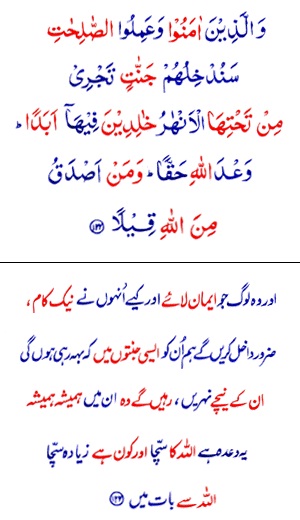 وَالَّذِيْنَ اٰمَنُوْا وَعَمِلُوا الصّٰلِحٰتِ
سَنُدْخِلُهُمْ جَنّٰتٍ تَجْرِيْ
مِنْ تَحْتِهَا الْاَنْهٰرُ خٰلِدِيْنَ فِيْهَاۤ اَبَدًا ؕ
وَعْدَ اللّٰهِ حَقًّا ؕ وَمَنْ اَصْدَقُ
مِنَ اللّٰهِ قِيْلًا ۝۱۲۲
اور وہ لوگ جو ایمان لائے اور کیے اُنہوں نے نیک کام ،
ضرور داخل کریں گے ہم اُن کو ایسی جنتوں میں کہ بہہ رہی ہوں گی
ان کے نیچے نہریں ، رہیں گے وہ ان میں ہمیشہ ہمیشہ
یہ وعدہ ہے اللہ کا سچّا اور کون ہے زیادہ سچّا
اللہ سے بات میں ۝۱۲۲